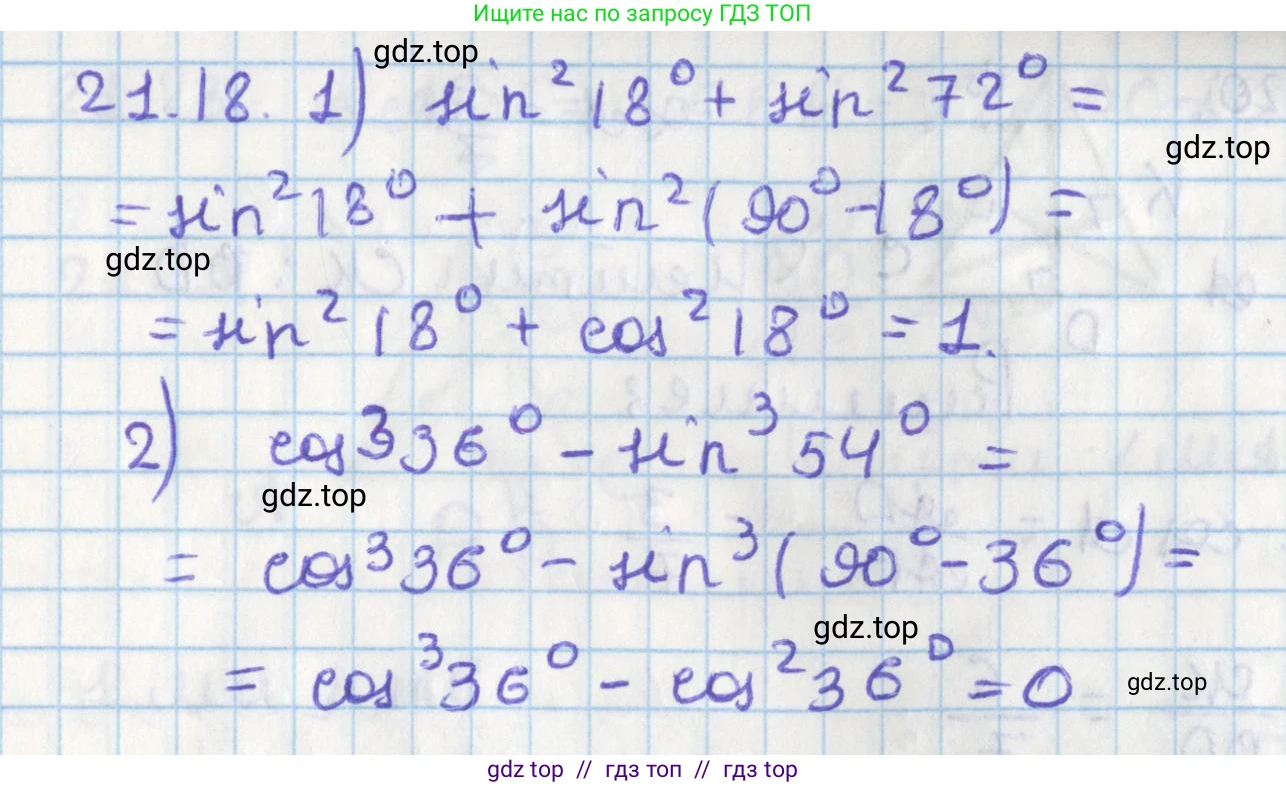 Ищите нас по запросу ГДЗ ТОП
gdz.top
21.18. 1) sin² 18⁰ + sin² 72⁰ =
gdz.top
= sin² 18⁰ + sin² (90⁰ - 18⁰) =
gdz.top
= sin² 18⁰ + cos² 18⁰ = 1.
2) cos³ 36⁰ - sin³ 54⁰ =
gdz.top
= cos³ 36⁰ - sin³ (90⁰ - 36⁰) =
gdz.top
= cos³ 36⁰ - cos² 36⁰ = 0
gdz.top
gdz top // гдз топ // гдз top